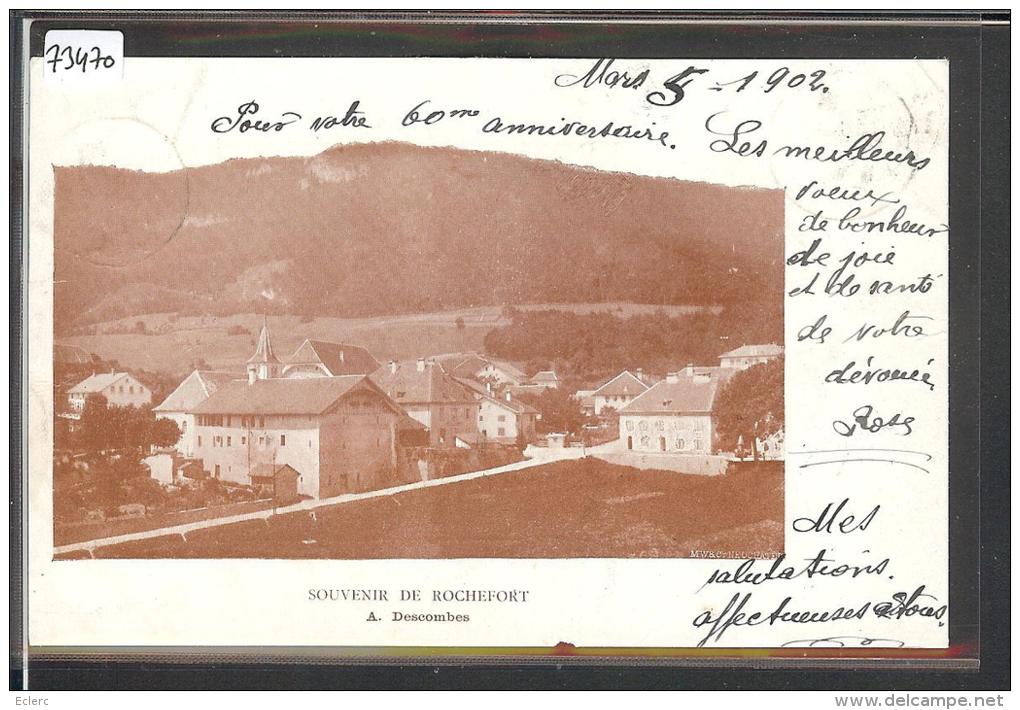 73470
Mars 5 - 1902.
Pour votre 60me anniversaire. Les meilleurs
voeux
de bonheur
de joie
et de santé
de votre
dévouée
Rose
Mes
salutations
affectueuses à tous.
M.W.&C. NEUCHATEL
SOUVENIR DE ROCHEFORT
A. Descombes
Eclerc
www.delcampe.net